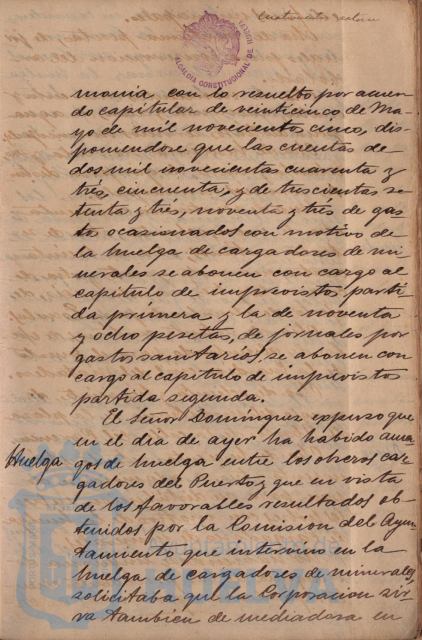 ALCALDÍA CONSTITUCIONAL DE HUELVA
monía con lo resuelto por acuer-
do capitular de veinticinco de Ma-
yo de mil novecientos cinco, dis-
poniendose que las cuentas de
dos mil novecientas cuarenta y
trés, cincuenta, y de trescientas se-
tenta y trés, noventa y trés de gas-
tos ocasionados con motivo de
la huelga de cargadores de mi-
nerales se abonen con cargo al
capitulo de imprevistos parti-
da primera y la de noventa
y ocho pesetas, de jornales por
gastos sanitarios, se abonen con
cargo al capitulo de imprevistos
partida segunda.
El Señor Domínguez expuso que
en el dia de ayer ha habido ama-
Huelga
gos de huelga entre los obreros car-
gadores del Puerto y que en vista
de los favorables resultados ob-
tenidos por la Comision del Ayun-
tamiento que intervino en la
huelga de cargadores de minerales,
solicitaba que la Corporacion sir-
va tambien de mediadora en